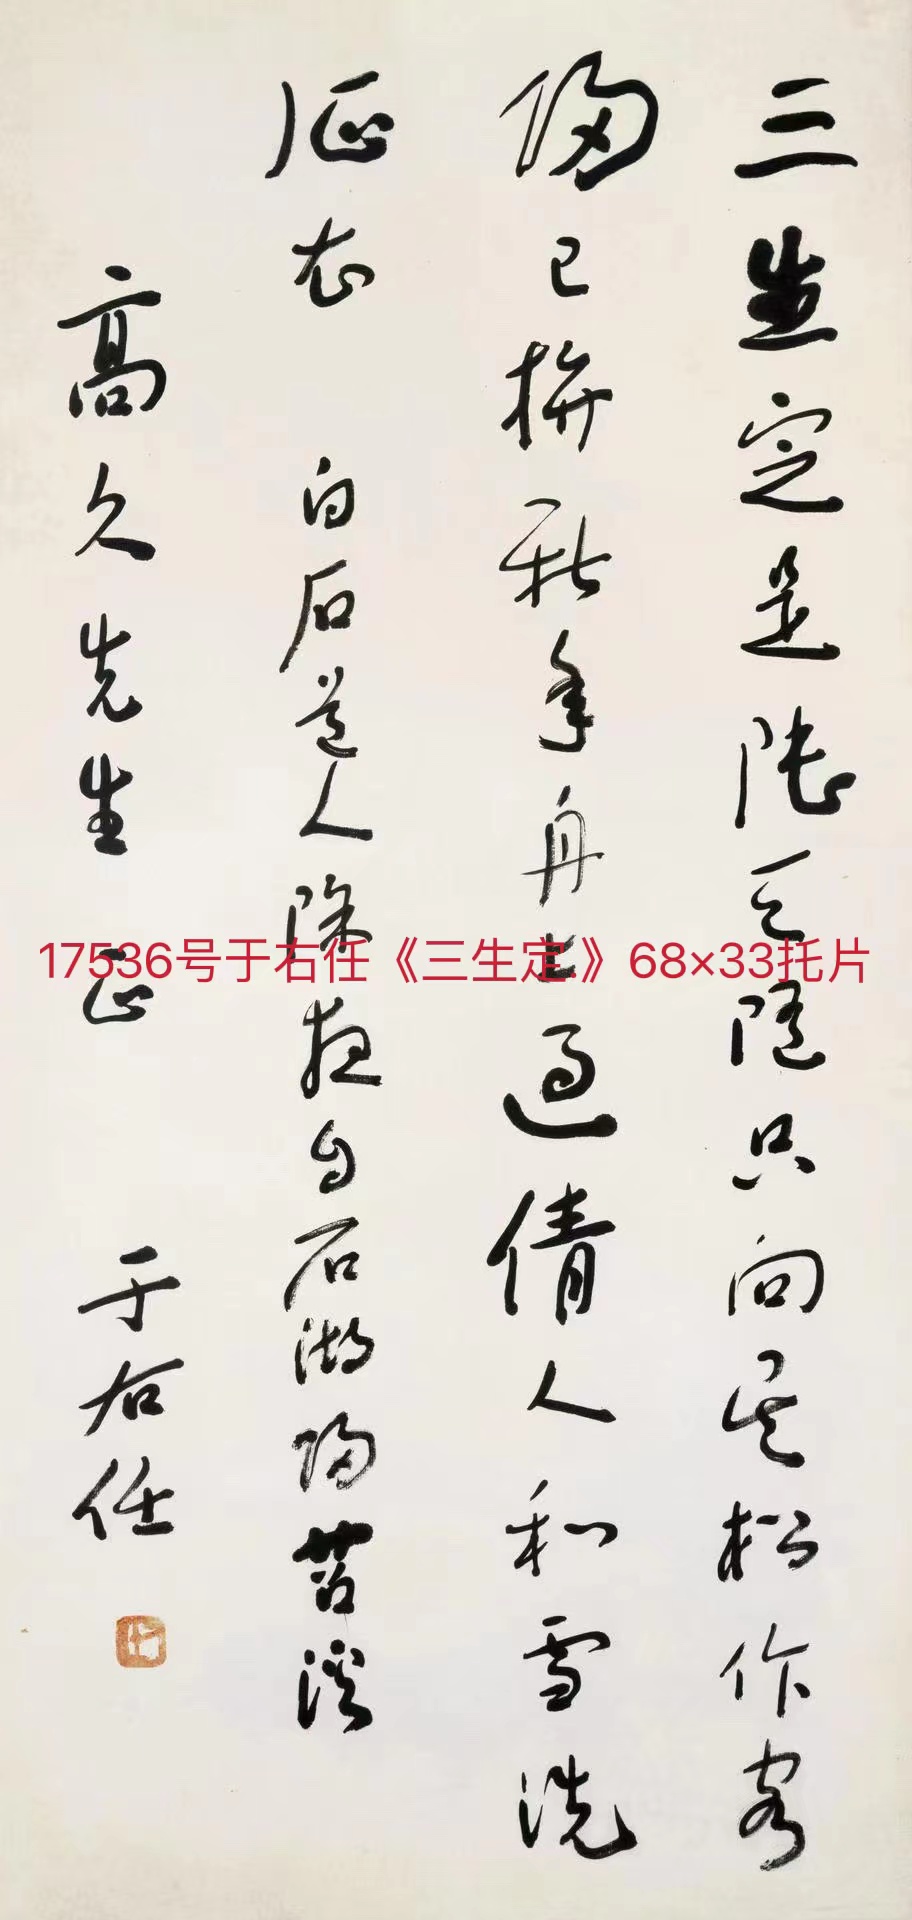 三生定是陸天隨只向吳松作客
歸已拚新年舟上過倩人和雪洗
征衣 白石道人除夜自石湖歸苕溪
高久先生 正 于右任
17536号于右任《三生定.》68×33托片